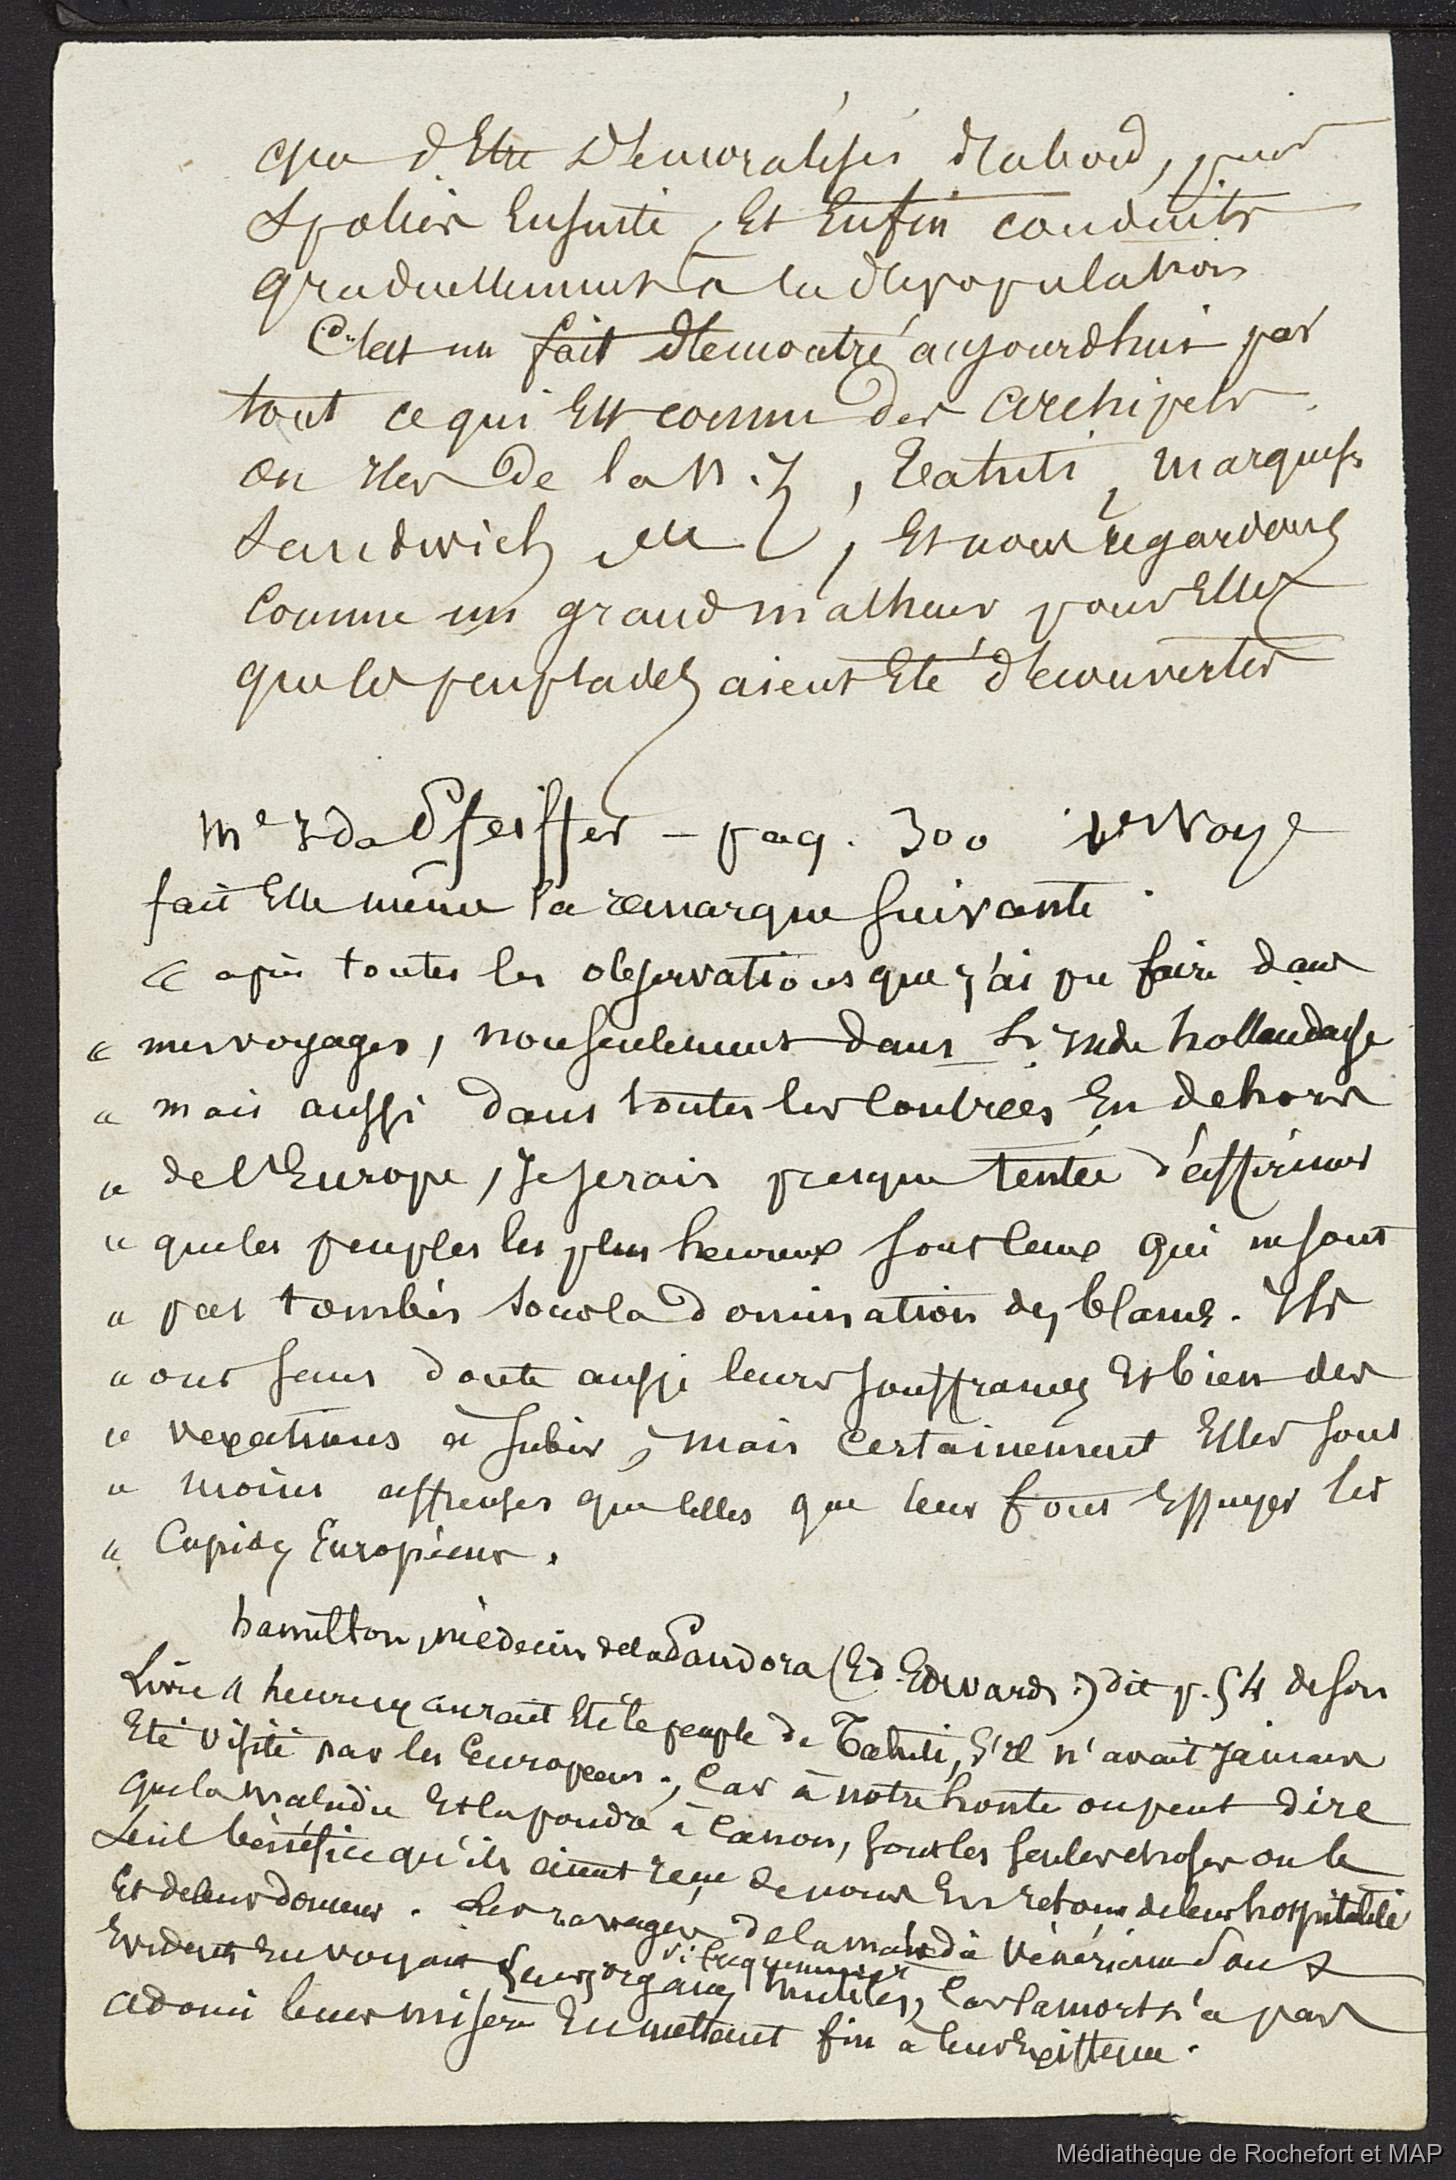 que d'Etre Démoralisés d'abord, puis
Spoliés Ensuite, Et Enfin conduits
graduellement à la dépopulation
C'est un fait démontré aujourdhui par
tout ce qui Est connu des archipels
ou iles de la N. Z, Taïti, marquises
Sandwich etc, Et nous regardons
Comme un grand malheur pour Elles
que les peuplades aient Eté découvertes
Me Ida Pfeiffer – pag. 300 Voye
fait Elle même la remarque Suivante
« après toutes les observations que j'ai pu faire dans
« mes voyages, non seulement dans L'Inde hollandaise
« mais aussi dans toutes les Contrées En dehors
« de l'Europe, Je serais presque tentée d'affirmer
« que les peuples les plus heureux sont Ceux qui ne sont
« pas tombés sous la Domination des blancs. Ils
« ont sans doute aussi leurs souffrances Et bien des
« vexations à subir, mais certainement Elles sont
« moins affreuses que Celles que leur font Essuyer les
« Cupides Européens.
hamilton, médecin de la Pandora (Ed. Edwards.) dit p. 54 de son
Livre " heureux auroit Eté le peuple de Tahiti, s'il n'avait jamais
Eté visité par les Européens ; Car à notre honte on peut dire
que la maladie Et la poudre à Canon, sont les seules choses ou le
Seul bénéfice qu'ils aient reçu de nous En retour de leur hospitalité
Et de leurs donneur. Les ravages de la maladie vénérienne sont
Evidents En voyant Leurs organes mutilés, Car la mort n'a pas
adouci leur misère En mettant fin à leur Existence.
Médiathèque de Rochefort et MAP